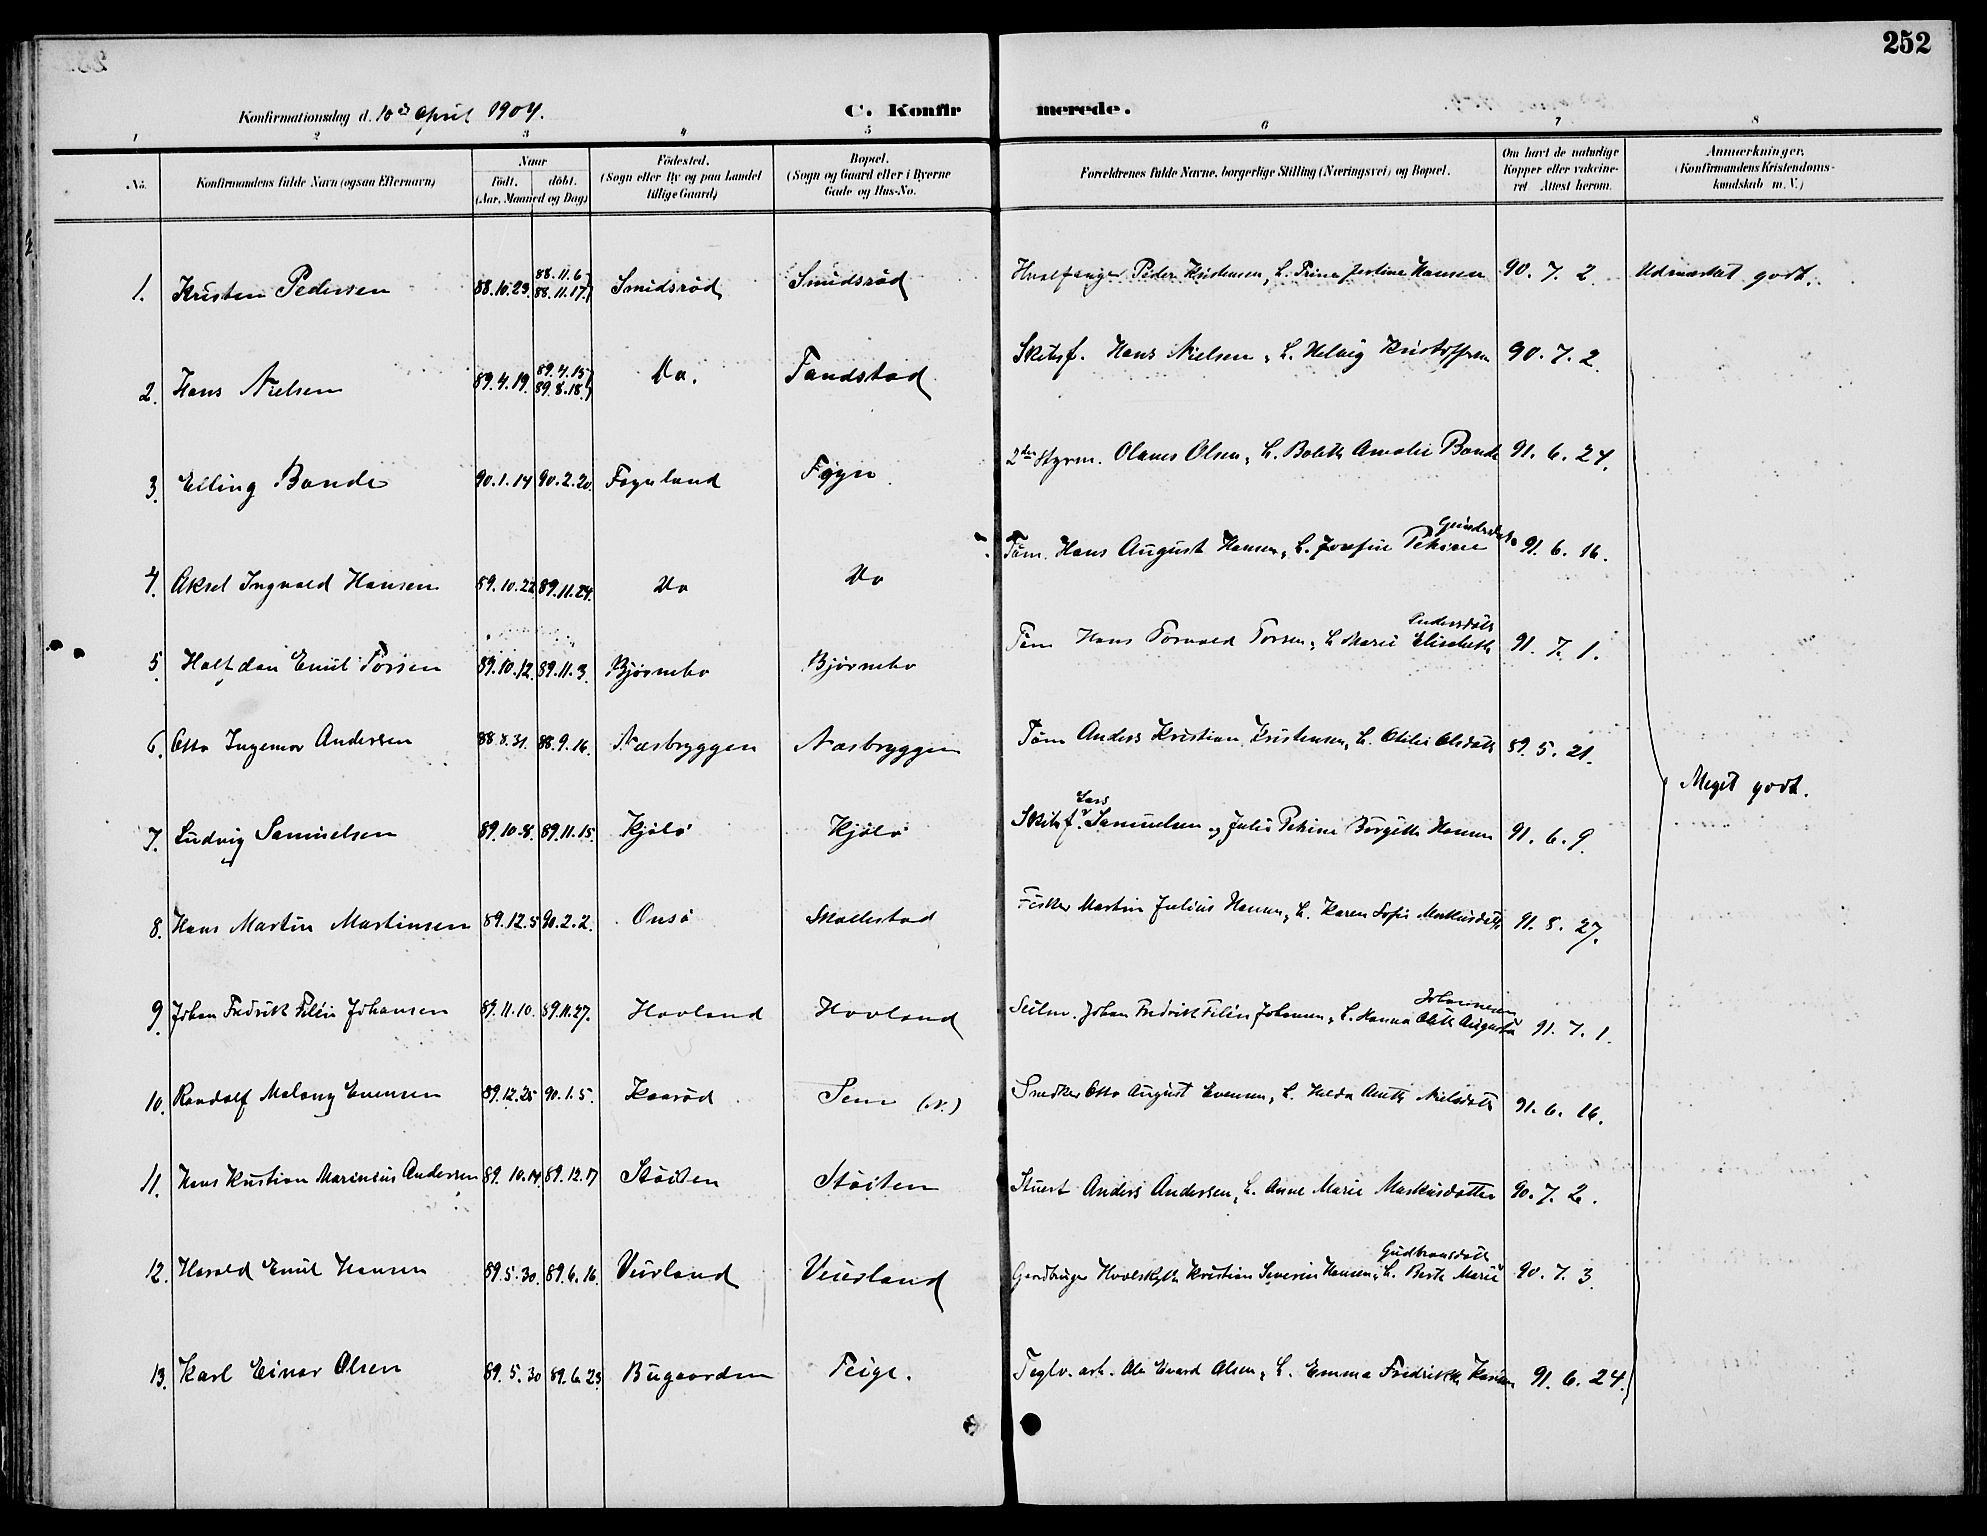 252
Konfirmationsdag d. 10de April 1904. C. Konfirmerede.
1 2 3 4 5 6 7 8
No. Konfirmandens fulde Navn (ogsaa Efternavn) Naar födt. döbt. (Aar, Maaned og Dag) Födested. (Sogn eller By og paa Landet tillige Gaard) Bopæl. (Sogn og Gaard eller i Byerne Gade og Hus-No. Forældrenes fulde Navne, borgerlige Stilling (Næringsvei) og Bopæl. Om havt de naturlige Kopper eller vakcineret. Attest herom. Anmærkninger, (Konfirmandens Kristendomskundskab m. V.)
1. Kristen Pedersen 88.10.23. 88.11.6 88.11.17. Smidsrød Smidsrød Hvalfanger Peder Kristensen, h. Trine Justine Hansen 90.7.2. Udmærket godt.
2. Hans Nielsen 89.4.19. 89.4.15 89.8.18. Do. Tandstad Skibsf. Hans Nielsen, h. Helvig Kristoffersen 90.7.2.
3. Elling Bonde 90.1.14 90.2.20. Føynland Føyn 2den Styrm. Olaves Olsen, h. Bolette Amalie Bonde 91.6.24.
4. Aksel Ingvald Hansen 89.10.22 89.11.24. Do Do Tøm. Hans August Hansen, h. Josefine Petrine 91.6.16.
5. Halfdan Emil Torsen 89.10.12. 89.11.3. Bjørnebo Bjørnebo Tøm Hans Torvald Torsen, h. Marie Elisabeth Pedersdatt 91.7.1.
6. Otto Ingemar Andersen 88.8.31. 88.9.16. Næsbryggen Næsbryggen Tøm Anders Kristian Kristensen, h. Otilie Olsdatt 89.5.21.
Meget godt.
7. Ludvig Samuelsen 89.10.8. 89.11.15. Kjølø Kjølø Skibsf. Lars Samuelsen og Julie Petrine Birgitte Hansen 91.6.9.
8. Hans Martin Martinsen 89.12.5 90.2.2. Onsø Skallestad Fisker Martin Julius Hansen, h. Karen Sofie Markusdatt 91.8.27.
9. Johan Fredrik Filén Johansen 89.11.10. 89.11.27. Hovland Hovland Seilm. Johan Fredrik Filén Johansen, h. Hanna Olette Augusta Johannesen 91.7.1.
10. Randolf Melony Evensen 89.12.25 90.1.5. Kaarød Sem (N.) Snedker Otto August Evensen, h. Hilda Anette Nielsdatt 91.6.16.
11. Hans Kristian Marinius Andersen 89.10.14 89.12.17 Støiten Støiten Stuert Anders Andersen, h. Anne Marie Markusdatter 90.7.2.
12. Harald Emil Hansen 89.5.30. 89.6.16. Veierland Veierland Gaardbruger Kristian Severin Hansen, h. Berte Marie Gudbransdatt 90.7.3.
13. Karl Einar Olsen 89.5.30 89.6.23 Bugaarden Teige. Teglv. arb. Ole Edvard Olsen, h. Emma Fredrikke 91.6.24.